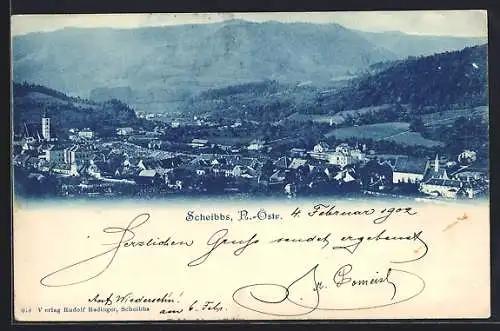 Scheibbs, N.-Östr. 4. Februar 1902
Herzlichen Gruss sendet ergebenst
Fr.
Auf Wiederseh'n!
am 6. Febr.
918 Verlag Rudolf Radinger, Scheibbs